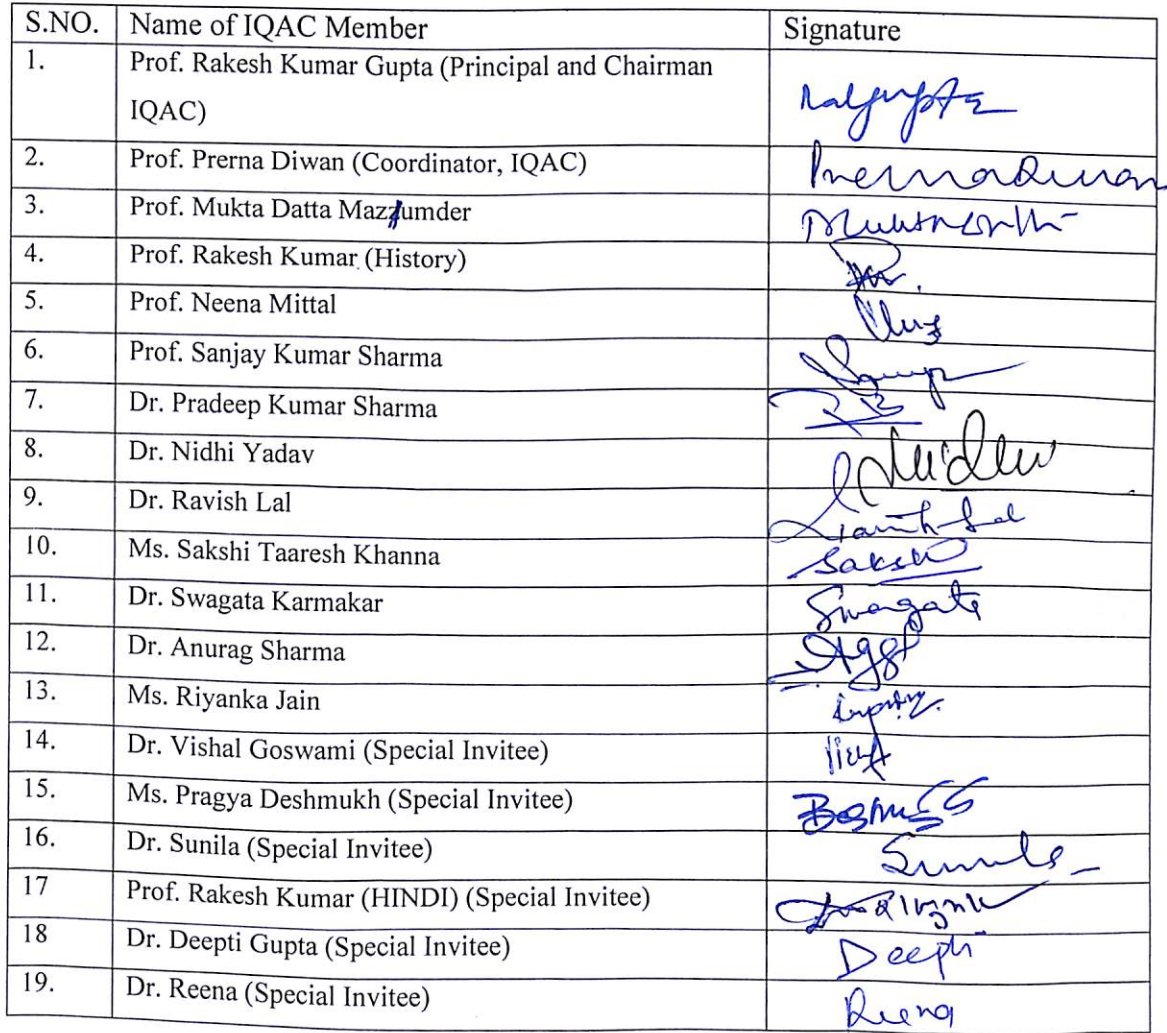 S.NO. Name of IQAC Member Signature
1. Prof. Rakesh Kumar Gupta (Principal and Chairman
IQAC)
2. Prof. Prerna Diwan (Coordinator, IQAC) Prerna Diwan
3. Prof. Mukta Datta Mazumder
4. Prof. Rakesh Kumar (History)
5. Prof. Neena Mittal
6. Prof. Sanjay Kumar Sharma
7. Dr. Pradeep Kumar Sharma
8. Dr. Nidhi Yadav
9. Dr. Ravish Lal
10. Ms. Sakshi Taaresh Khanna Sakshi
11. Dr. Swagata Karmakar Swagata
12. Dr. Anurag Sharma
13. Ms. Riyanka Jain
14. Dr. Vishal Goswami (Special Invitee)
15. Ms. Pragya Deshmukh (Special Invitee)
16. Dr. Sunila (Special Invitee) Sunila
17 Prof. Rakesh Kumar (HINDI) (Special Invitee)
18 Dr. Deepti Gupta (Special Invitee) Deepti
19. Dr. Reena (Special Invitee) Reena